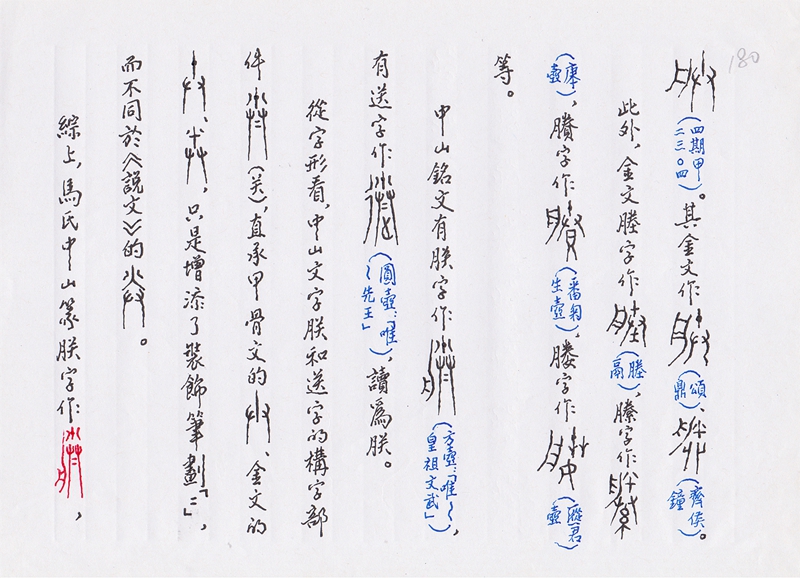 180
(四期甲二三〇四)。其金文作(頌鼎)、(齊侯鐘)。
此外，金文塍字作(塍鬲)，縢字作
(康壺)，賸字作(番匊生壺)，媵字作(君壺)
等。
中山銘文有朕字作(方壺：「唯〻皇祖文武」)，
有送字作(圓壺：「唯〻先王」)，讀爲朕。
從字形看，中山文字朕和送字的構字部
件(关)，直承甲骨文的、金文的
、，只是增添了裝飾筆劃「二」，
而不同於《說文》的。
綜上，馬氏中山篆朕字作，